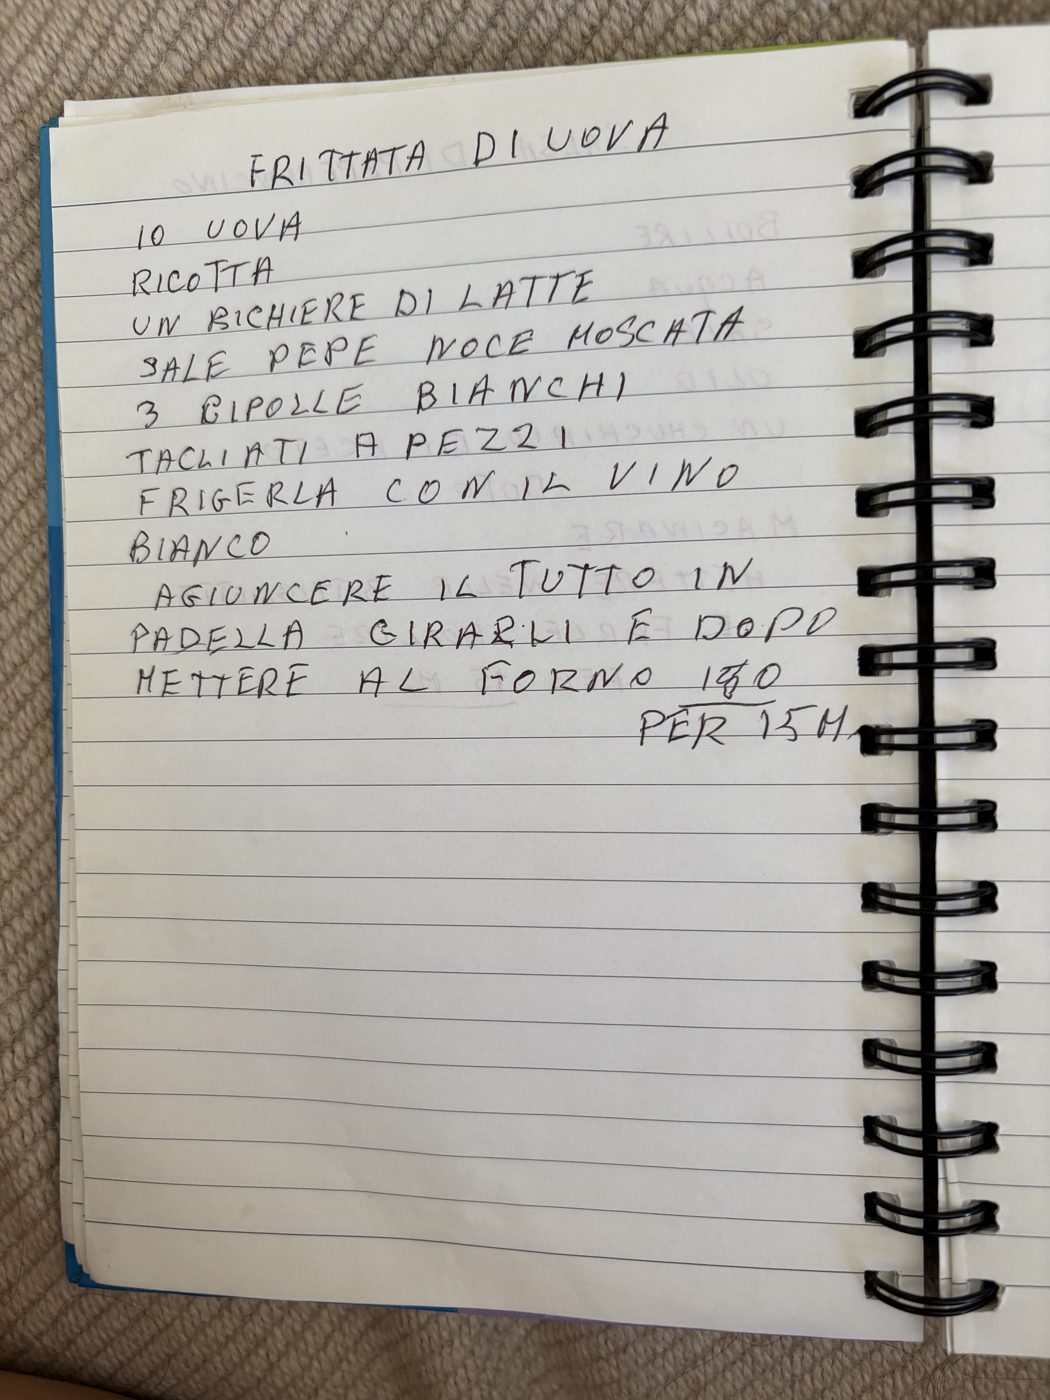 FRITTATA DI UOVA
10 UOVA
RICOTTA
UN BICHIERE DI LATTE
SALE PEPE NOCE MOSCATA
3 CIPOLLE BIANCHI
TAGLIATI A PEZZI
FRIGERLA CON IL VINO
BIANCO
AGIUNCERE IL TUTTO IN
PADELLA GIRARLI E DOPO
METTERE AL FORNO 180
PER 15 M.